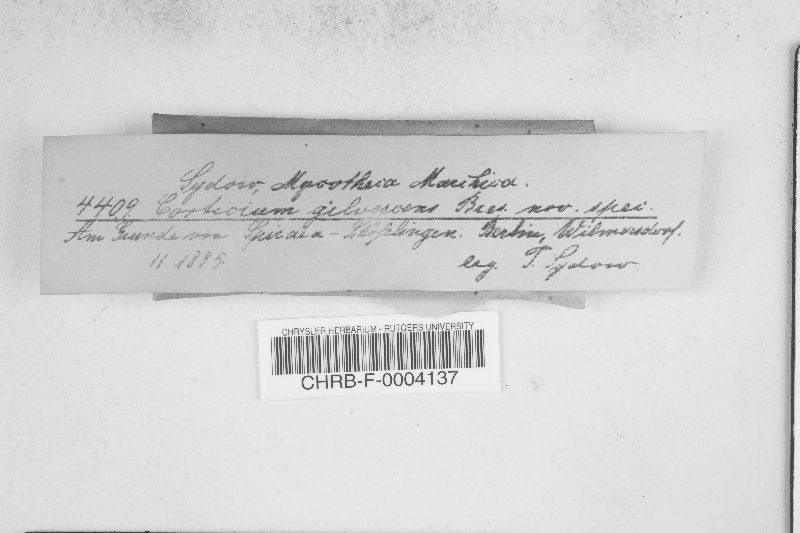 Sydow, Mycotheca Marchica.
4409 Corticium gilvescens Bres. nov. spei.
Am Grunde von Spiraea - Schösslingen. Berlin, Wilmersdorf.
11 1895. leg. P. Sydow.
CHRYSLER HERBARIUM - RUTGERS UNIVERSITY
CHRB-F-0004137